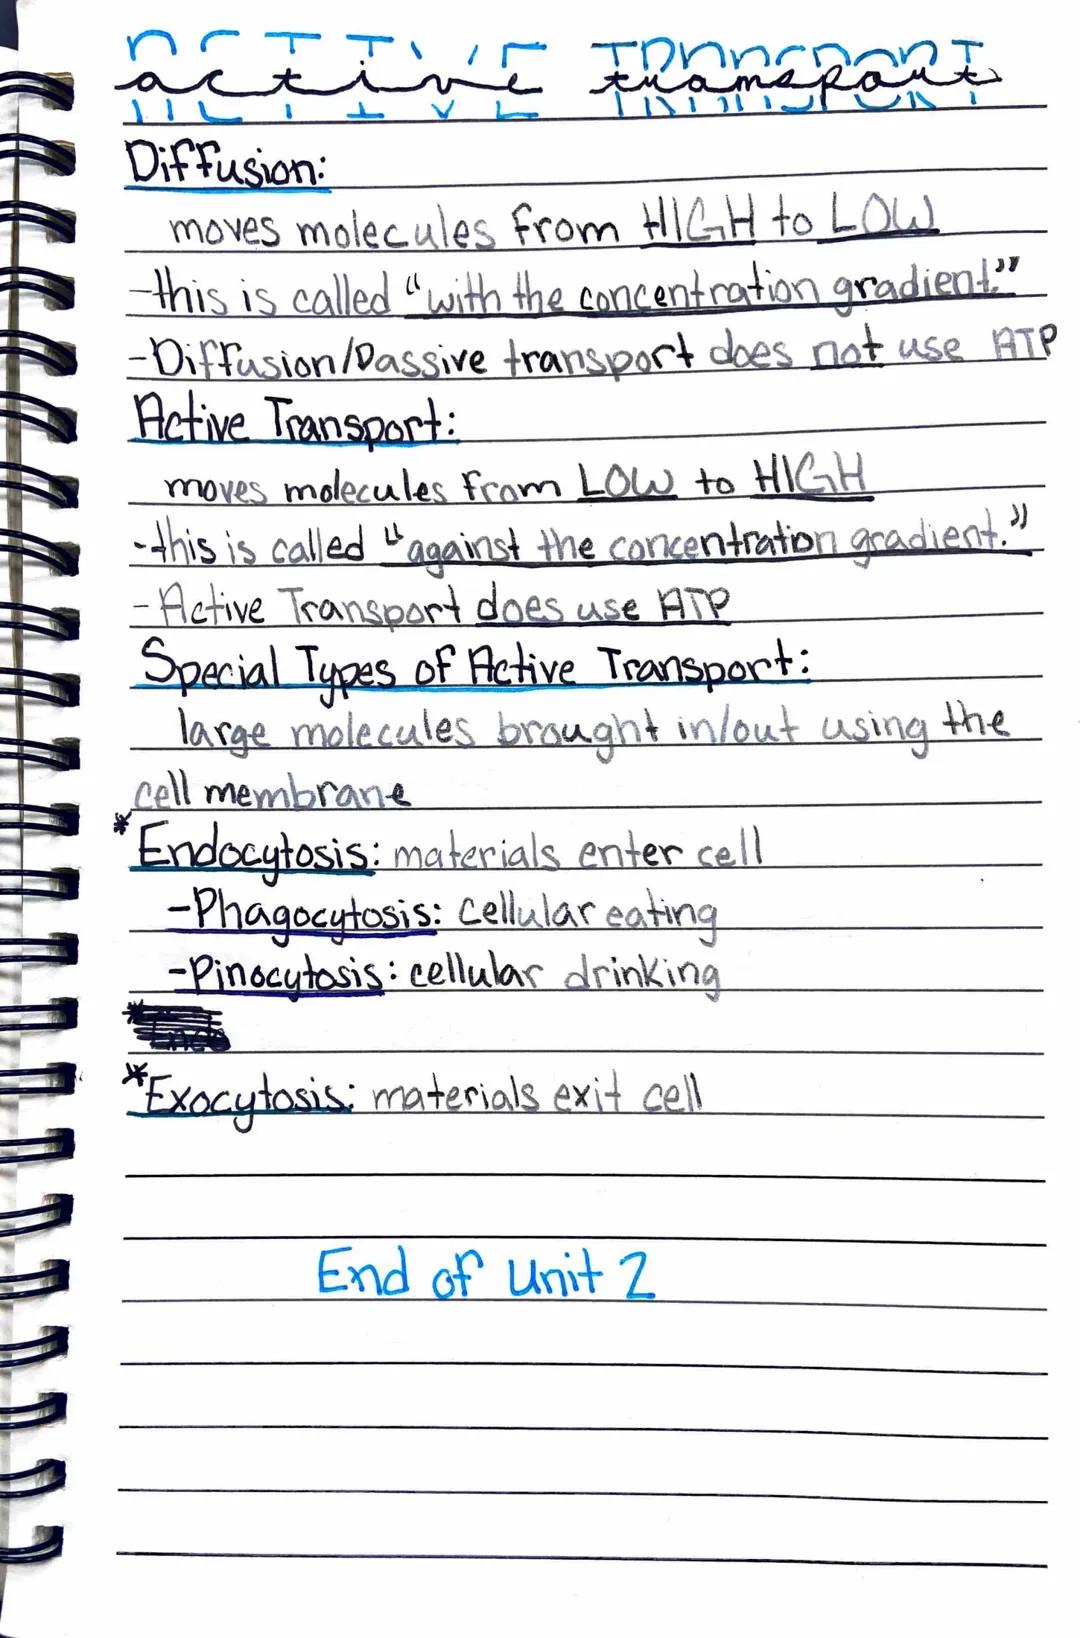 ACTIVE TRANSPORT
active transport
Diffusion:
moves molecules from HIGH to LOW
-this is called "with the concentration gradient."
-Diffusion/Passive transport does not use ATP
Active Transport:
moves molecules from LOW to HIGH
-this is called "against the concentration gradient."
-Active Transport does use ATP
Special Types of Active Transport:
large molecules brought in/out using the
cell membrane
*Endocytosis: materials enter cell
-Phagocytosis: cellular eating
-Pinocytosis: cellular drinking
*Exocytosis: materials exit cell
End of Unit 2